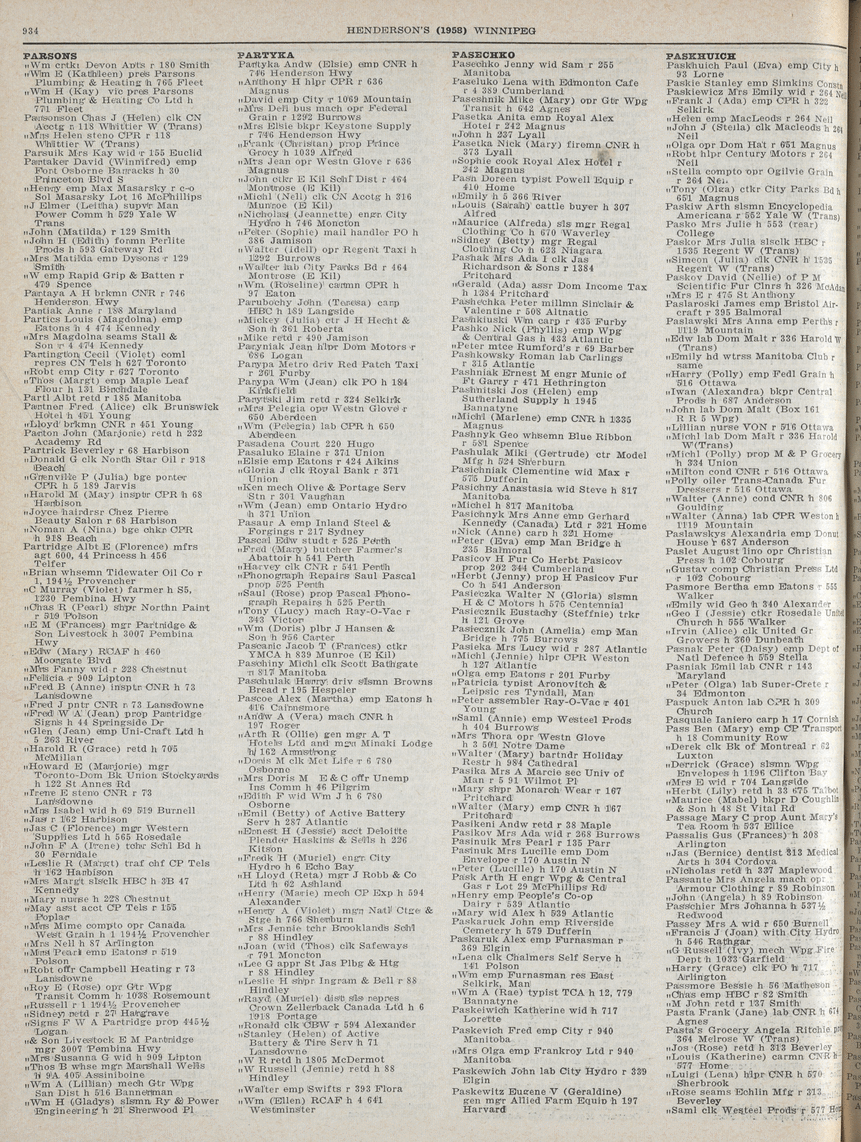 934
HENDERSON'S (1958) WINNIPEG
PARSONS
„Wm crtkr Devon Apts r 180 Smith
„Wm E (Kathleen) pres Parsons
Plumbing & Heating h 765 Fleet
„Wm H (Kay) vic pres Parsons
Plumbing & Heating Co Ltd h
771 Fleet
Parsonson Chas J (Helen) clk CN
Acctg r 118 Whittier W (Trans)
„Mrs Helen steno CPR r 118
Whittier W (Trans)
Parsuik Mrs Kay wid r 155 Euclid
Partaker David (Winnifred) emp
Fort Osborne Barracks h 30
Princeton Blvd S
„Henry emp Max Masarsky r c-o
Sol Masarsky Lot 16 McPhillips
„J Elmer (Leitha) suprvr Man
Power Comm h 529 Yale W
Trans
„John (Matilda) r 129 Smith
„John H (Edith) formn Perlite
Prods h 593 Gateway Rd
„Mrs Matilda emp Dysons r 129
Smith
„W emp Rapid Grip & Batten r
479 Spence
Partaya A H brkmn CNR r 746
Henderson Hwy
Partiak Anne r 188 Maryland
Partics Louis (Magdolna) emp
Eatons h 4 474 Kennedy
„Mrs Magdolna seams Stall &
Son r 4 474 Kennedy
Partington Cecil (Violet) coml
repres CN Tels h 627 Toronto
„Robt emp City r 627 Toronto
„Thos (Margt) emp Maple Leaf
Flour h 131 Birchdale
Partl Albt retd r 185 Manitoba
Partner Fred (Alice) clk Brunswick
Hotel h 451 Young
„Lloyd brkmn CNR r 451 Young
Parton John (Marjorie) retd h 232
Academy Rd
Partrick Beverley r 68 Harbison
„Donald G clk North Star Oil r 918
Beach
„Grenville P (Julia) bge porter
CPR h 5 189 Jarvis
„Harold M (May) insptr CPR h 68
Harbison
„Joyce hairdrsr Chez Pierre
Beauty Salon r 68 Harbison
„Norman A (Nina) bge chkr CPR
h 918 Beach
Partridge Albt E (Florence) mfrs
agt 600, 44 Princess h 456
Telfer
„Brian whsemn Tidewater Oil Co r
1, 194½ Provencher
„C Murray (Violet) farmer h S5,
1230 Pembina Hwy
„Chas R (Pearl) shpr Northn Paint
r 519 Polson
„E M (Frances) mgr Partridge &
Son Livestock h 3007 Pembina
Hwy
„Edw (Mary) RCAF h 460
Moorgate Blvd
„Mrs Fanny wid r 228 Chestnut
„Felicia r 909 Lipton
„Fred B (Anne) insptr CNR h 73
Lansdowne
„Fred J pntr CNR r 73 Lansdowne
„Fred W A (Jean) prop Partridge
Signs h 44 Springside Dr
„Glen (Jean) emp Uni-Craft Ltd h
5 263 River
„Harold R (Grace) retd h 705
McMillan
„Howard E (Marjorie) mgr
Toronto-Dom Bk Union Stockyards
h 122 St Annes Rd
„Irene E steno CNR r 73
Lansdowne
„Mrs Isabel wid h 69 519 Burnell
„Jas r 162 Harbison
„Jas C (Florence) mgr Western
Supplies Ltd h 565 Rosedale
„John F A (Irene) tchr Schl Bd h
30 Ferndale
„Leslie R (Margt) traf chf CP Tels
h 162 Harbison
„Mrs Margt slsclk HBC h 3B 47
Kennedy
„Mary nurse h 228 Chestnut
„May asst acct CP Tels r 155
Poplar
„Mrs Mime compto opr Canada
West Grain h 1 194½ Provencher
„Mrs Nell h 87 Arlington
„Mrs Pearl emp Eatons r 519
Polson
„Robt offr Campbell Heating r 73
Lansdowne
„Roy E (Rose) opr Gtr Wpg
Transit Comm h 1038 Rosemount
„Russell r 1 194½ Provencher
„Sidney retd r 27 Hargrave
„Signs F W A Partridge prop 445½
Logan
„& Son Livestock E M Partridge
mgr 3007 Pembina Hwy
„Mrs Susanna G wid h 909 Lipton
„Thos B whse mgr Marshall Wells
h 9A 405 Assiniboine
„Wm A (Lillian) mech Gtr Wpg
San Dist h 516 Bannerman
„Wm H (Gladys) slsmn Ry & Power
Engineering h 21 Sherwood Pl
PARTYKA
Partyka Andw (Elsie) emp CNR h
746 Henderson Hwy
„Anthony H hlpr CPR r 636
Magnus
„David emp City r 1069 Mountain
„Mrs Dell bus mach opr Federal
Grain r 1292 Burrows
„Mrs Elsie bkpr Keystone Supply
r 746 Henderson Hwy
„Frank (Christian) prop Prince
Grocy h 1039 Alfred
„Mrs Jean opr Westn Glove r 636
Magnus
„John ctkr E Kil Schl Dist r 464
Montrose (E Kil)
„Michl (Nell) clk CN Acctg h 316
Munroe (E Kil)
„Nicholas (Jeannette) engr City
Hydro h 746 Moncton
„Peter (Sophie) mail handler PO h
386 Jamison
„Walter (Idell) opr Regent Taxi h
1292 Burrows
„Walter lab City Parks Bd r 464
Montrose (E Kil)
„Wm (Roseline) carmn CPR h
97 Eaton
Parubochy John (Teresa) carp
HBC h 189 Langside
„Mickey (Julia) ctr J H Hecht &
Son h 361 Roberta
„Mike retd r 490 Jamison
Paryniak Jean hlpr Dom Motors r
686 Logan
Parypa Metro driv Red Patch Taxi
r 261 Furby
Parypa Wm (Jean) clk PO h 184
Kirkfield
Parytski Jim retd r 324 Selkirk
„Mrs Pelegia opr Westn Glove r
650 Aberdeen
„Wm (Pelegia) lab CPR h 650
Aberdeen
Pasadena Court 220 Hugo
Pasaluko Elaine r 371 Union
„Elsie emp Eatons r 424 Aikins
„Gloria J clk Royal Bank r 371
Union
„Ken mech Olive & Portage Serv
Stn r 301 Vaughan
„Wm (Jean) emp Ontario Hydro
h 371 Union
Pasaur A emp Inland Steel &
Forgings r 217 Sydney
Pascal Edw studt r 525 Perth
„Fred (Mary) butcher Farmer's
Abattoir h 541 Perth
„Harvey clk CNR r 541 Perth
„Phonograph Repairs Saul Pascal
prop 525 Perth
„Saul (Rose) prop Pascal Phono-
graph Repairs h 525 Perth
„Tony (Lucy) mach Ray-O-Vac r
343 Victor
„Wm (Doris) plbr J Hansen &
Son h 956 Carter
Pascanic Jacob T (Frances) ctkr
YMCA h 839 Munroe (E Kil)
Paschiny Michl clk Scott Bathgate
r 817 Manitoba
Paschulak Harry driv slsmn Browns
Bread r 195 Hespeler
Pascoe Alex (Martha) emp Eatons h
416 Cairnsmore
„Andw A (Vera) mach CNR h
197 Roger
„Arth R (Ollie) gen mgr A T
Hotels Ltd and mgr Minaki Lodge
h 162 Armstrong
„Doris M clk Met Life r 6 780
Osborne
„Mrs Doris M E & C offr Unemp
Ins Comm h 46 Pilgrim
„Edith F wid Wm J h 6 780
Osborne
„Emil (Betty) of Active Battery
Serv h 287 Atlantic
„Ernest H (Jessie) acct Deloitte
Plender Haskins & Sells h 226
Kitson
„Fredk H (Muriel) engr City
Hydro h 6 Echo Bay
„H Lloyd (Reta) mgr J Robb & Co
Ltd h 62 Ashland
„Henry (Marie) mech CP Exp h 594
Alexander
„Henry A (Violet) mgr Natl Ctge &
Stge h 766 Sherburn
„Mrs Jennie tchr Brooklands Schl
r 88 Hindley
„Joan (wid Thos) clk Safeways
r 791 Moncton
„Lee G appr St Jas Plbg & Htg
r 88 Hindley
„Leslie H shpr Ingram & Bell r 88
Hindley
„Rayd (Muriel) dist sls repres
Crown Zellerback Canada Ltd h 6
1918 Portage
„Ronald clk CBW r 594 Alexander
„Stanley (Helen) of Active
Battery & Tire Serv h 71
Lansdowne
„W R retd h 1805 McDermot
„W Russell (Jennie) retd h 88
Hindley
„Walter emp Swifts r 393 Flora
„Wm (Ellen) RCAF h 4 641
Westminster
PASECHKO
Pasechko Jenny wid Sam r 255
Manitoba
Paseluko Lena with Edmonton Cafe
r 4 389 Cumberland
Paseshnik Mike (Mary) opr Gtr Wpg
Transit h 642 Agnes
Pasetka Anita emp Royal Alex
Hotel r 242 Magnus
„John h 237 Lyall
Pasetka Nick (Mary) firemn CNR h
373 Lyall
„Sophie cook Royal Alex Hotel r
242 Magnus
Pash Doreen typist Powell Equip r
410 Home
„Emily h 5 366 River
„Louis (Sarah) cattle buyer h 307
Alfred
„Maurice (Alfreda) sls mgr Regal
Clothing Co h 670 Waverley
„Sidney (Betty) mgr Regal
Clothing Co h 623 Niagara
Pashak Mrs Ada I clk Jas
Richardson & Sons r 1384
Pritchard
„Gerald (Ada) assr Dom Income Tax
h 1384 Pritchard
Pashechka Peter millmn Sinclair &
Valentine r 508 Altnatic
Pashkiuski Wm carp r 435 Furby
Pashko Nick (Phyllis) emp Wpg
& Central Gas h 433 Atlantic
„Peter mtce Rumford's r 69 Barber
Pashkowsky Roman lab Carlings
r 315 Atlantic
Pashniak Ernest M engr Munic of
Ft Garry r 471 Hethrington
Pashnitski Jos (Helen) emp
Sutherland Supply h 1945
Bannatyne
„Michl (Marlene) emp CNR h 1335
Magnus
Pashnyk Geo whsemn Blue Ribbon
r 581 Spence
Pashulak Miki (Gertrude) ctr Model
Mfg h 524 Sherburn
Pasichniak Clementine wid Max r
575 Dufferin
Pasichny Anastasia wid Steve h 817
Manitoba
„Michel h 817 Manitoba
Pasichnyk Mrs Anne emp Gerhard
Kennedy (Canada) Ltd r 321 Home
„Nick (Anne) carp h 321 Home
„Peter (Eva) emp Man Bridge h
235 Balmoral
Pasicov H Fur Co Herbt Pasicov
prop 202 344 Cumberland
„Herbt (Jenny) prop H Pasicov Fur
Co h 541 Anderson
Pasieczka Walter N (Gloria) slsmn
H & C Motors h 575 Centennial
Pasiecznik Eustachy (Steffnie) trkr
h 121 Grove
Pasiecznik John (Amelia) emp Man
Bridge h 775 Burrows
Pasieka Mrs Lucy wid r 287 Atlantic
„Michl (Jennie) hlpr CPR Weston
h 127 Atlantic
„Olga emp Eatons r 201 Furby
„Patricia typist Aronovitch &
Leipsic res Tyndall, Man
„Peter assembler Ray-O-Vac r 401
Young
„Saml (Annie) emp Westeel Prods
h 404 Burrows
„Mrs Thora opr Westn Glove
h 3 501 Notre Dame
„Walter (Mary) bartndr Holiday
Restr h 984 Cathedral
Pasika Mrs A Marcie sec Univ of
Man r 5 91 Wilmot Pl
„Mary shpr Monarch Wear r 167
Pritchard
„Walter (Mary) emp CNR h 167
Pritchard
Pasikeni Andw retd r 38 Maple
Pasikov Mrs Ada wid r 268 Burrows
Pasinuik Mrs Pearl r 135 Parr
Pasinuk Mrs Lucille emp Dom
Envelope r 170 Austin N
„Peter (Lucille) h 170 Austin N
Pask Arth H engr Wpg & Central
Gas r Lot 29 McPhillips Rd
„Henry emp People's Co-op
Dairy r 539 Atlantic
„Mary wid Alex h 539 Atlantic
Paskaruck John emp Riverside
Cemetery h 579 Dufferin
Paskaruk Alex emp Furnasman r
369 Elgin
„Lena clk Chalmers Self Serve h
141 Polson
„Wm emp Furnasman res East
Selkirk, Man
„Wm A (Rae) typist TCA h 12, 779
Bannatyne
Paskeiwich Katherine wid h 717
Lorette
Paskevich Fred emp City r 940
Manitoba
„Mrs Olga emp Frankroy Ltd r 940
Manitoba
Paskewich John lab City Hydro r 339
Elgin
Paskewitz Eugene V (Geraldine)
gen mgr Allied Farm Equip h 197
Harvard
PASKHUICH
Paskhuich Paul (Eva) emp City h
93 Lorne
Paskie Stanley emp Simkins
Paskiewicz Mrs Emily wid r 264 Neil
„Frank J (Ada) emp CPR h 322
Selkirk
„Helen emp MacLeods r 264 Neil
„John J (Stella) clk Macleods h 264
Neil
„Olga opr Dom Hat r 651 Magnus
„Robt hlpr Century Motors r 264
Neil
„Stella compto opr Ogilvie Grain
r 264 Neil
„Tony (Olga) ctkr City Parks Bd h
651 Magnus
Paskiw Arth slsmn Encyclopedia
Americana r 552 Yale W (Trans)
Pasko Mrs Julie h 553 (rear)
College
Paskor Mrs Julia slsclk HBC r
1535 Regent W (Trans)
„Simeon (Julia) clk CNR h 1535
Regent W (Trans)
Paskov David (Nellie) of P M
Scientific Fur Clnrs h 326 McAdam
„Mrs E r 475 St Anthony
Paslaroski James emp Bristol Air-
craft r 395 Balmoral
Paslawski Mrs Anna emp Perths r
1119 Mountain
„Edw lab Dom Malt r 336 Harold W
(Trans)
„Emily hd wtrss Manitoba Club r
same
„Harry (Polly) emp Fedl Grain h
516 Ottawa
„Iwan (Alexandra) bkpr Central
Prods h 687 Anderson
„John lab Dom Malt (Box 161
R R 5 Wpg)
„Lillian nurse VON r 516 Ottawa
„Michl lab Dom Malt r 336 Harold
W(Trans)
„Michl (Polly) prop M & P Grocery
h 334 Union
„Milton cond CNR r 516 Ottawa
„Polly oiler Trans-Canada Fur
Dressers r 516 Ottawa
„Walter (Anne) cond CNR h 806
Goulding
„Walter (Anna) lab CPR Weston h
1119 Mountain
Paslawskys Alexandria emp Donut
House r 687 Anderson
Paslet August lino opr Christian
Press h 102 Cobourg
„Gustav comp Christian Press Ltd
r 102 Cobourg
Pasmore Bertha emp Eatons r 555
Walker
„Emily wid Geo h 340 Alexander
„Geo I (Jessie) ctkr Rosedale United
Church h 555 Walker
„Irvin (Alice) clk United Gr
Growers h 360 Dunbeath
Pasnak Peter (Daisy) emp Dept of
Natl Defence h 559 Stella
Pasniak Emil lab CNR r 143
Maryland
„Peter (Olga) lab Super-Crete r
34 Edmonton
Paspuck Anton lab CPR h 309
Church
Pasquale Ianiero carp h 17 Cornish
Pass Ben (Mary) emp CP Transport
h 18 Community Row
„Derek clk Bk of Montreal r 62
Luxton
„Derrick (Grace) slsmn Wpg
Envelopes h 1196 Clifton Bay
„Mrs E wid r 704 Langside
„Herbt (Lily) retd h 33 675 Talbot
„Maurice (Mabel) bkpr D Coughlin
& Son h 48 St Vital Rd
Passage Mary C prop Aunt Mary's
Tea Room h 537 Ellice
Passalis Gus (Frances) h 308
Arlington
„Jas (Bernice) dentist 313 Medical
Arts h 304 Cordova
„Nicholas retd h 337 Maplewood
Passante Mrs Angela mach opr
Armour Clothing r 89 Robinson
„John (Angela) h 89 Robinson
Passchier Mrs Johanna h 537½
Redwood
Passey Mrs A wid r 650 Burnell
„Francis J (Joan) with City Hydro
h 546 Rathgar
„G Russell (Ivy) mech Wpg Fire
Dept h 1033 Garfield
„Harry (Grace) clk PO h 717
Arlington
Passmore Bessie h 56 Matheson
„Chas emp HBC r 82 Smith
„M John retd r 137 Smith
Pasta Frank (Jane) lab CNR h 674
Agnes
Pasta's Grocery Angela Ritchie
364 Melrose W (Trans)
„Jos (Rose) retd h 313 Beverley
„Louis (Katherine) carmn CNR h
577 Home
„Luigi (Lena) hlpr CNR h 570
Sherbrook
„Rose seams Echlin Mfg r 313
Beverley
„Saml clk Westeel Prods r 577